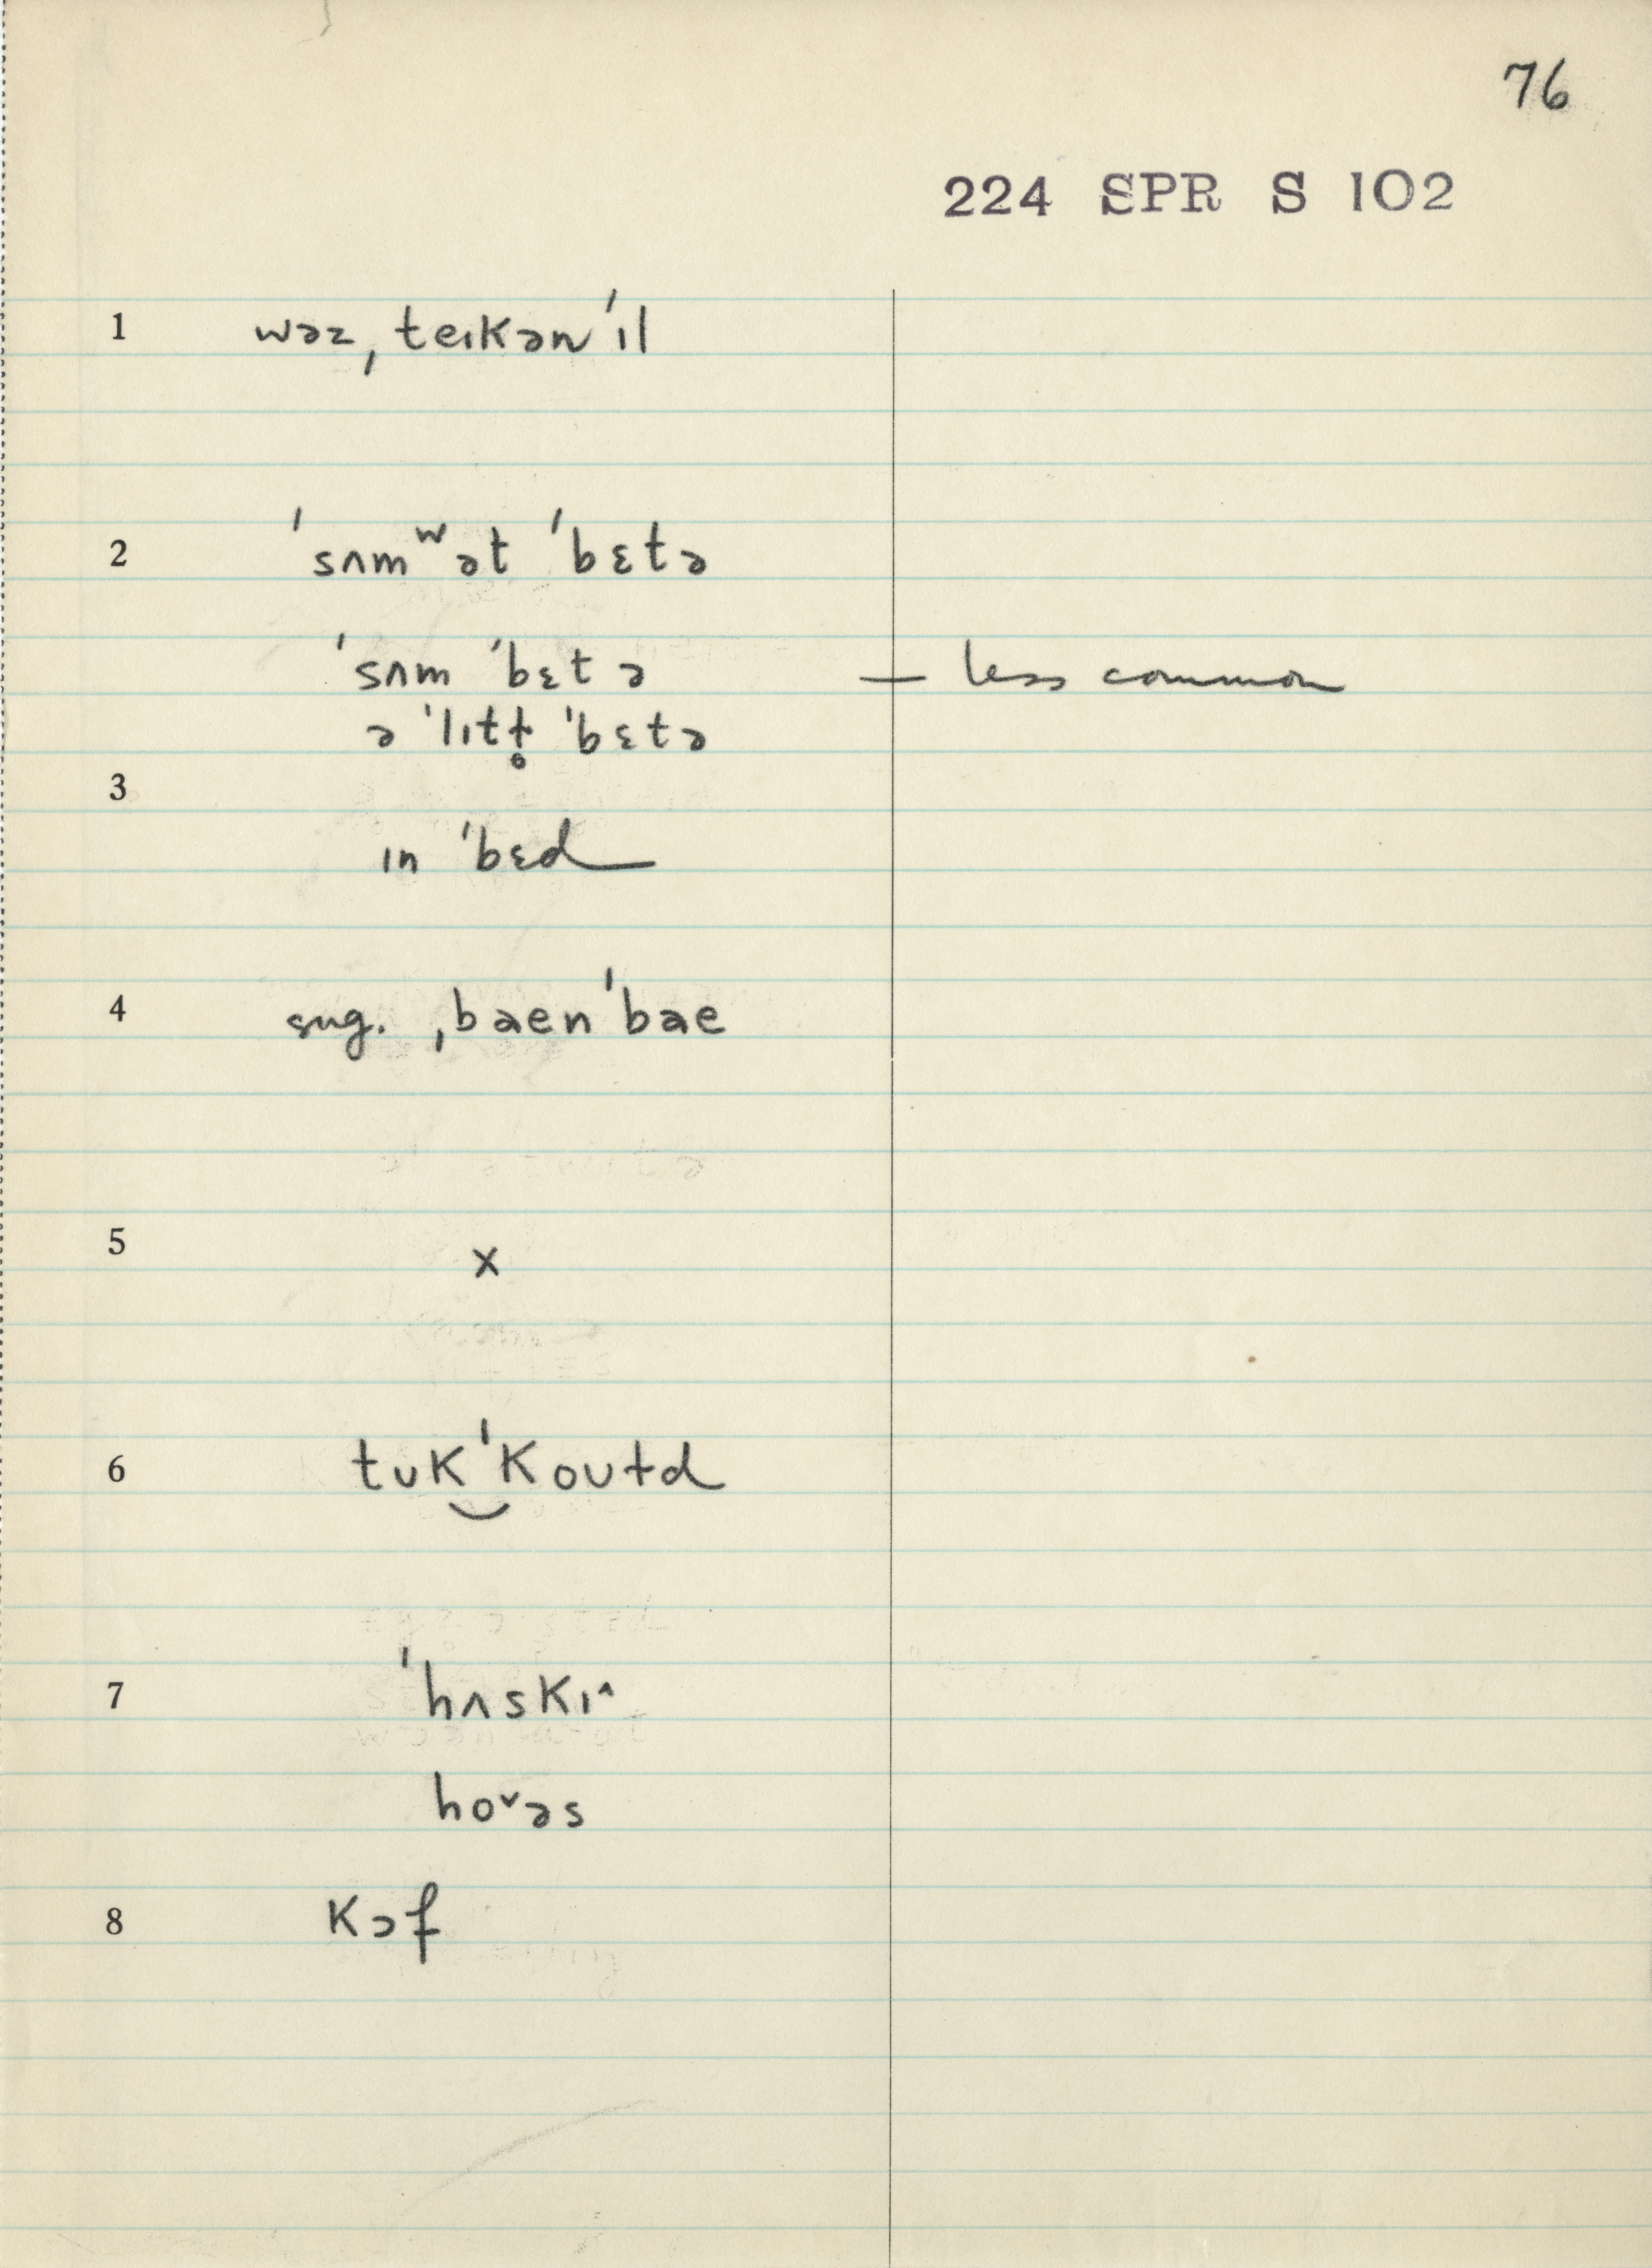 76
224 SPR S 102
1 wəz ˌteɪkən ˈɪl
2 ˈsʌmʷət ˈbɛtə
ˈsʌm ˈbɛtə — less common
ə ˈlɪtɫ̥ ˈbɛtə
3
ɪn ˈbɛd
4 sug. ˌbaenˈbae
5 x
6 tʊk‿ˈkoʊɫd
7 ˈhʌskɪ˄
ho˅əs
8 kɔf